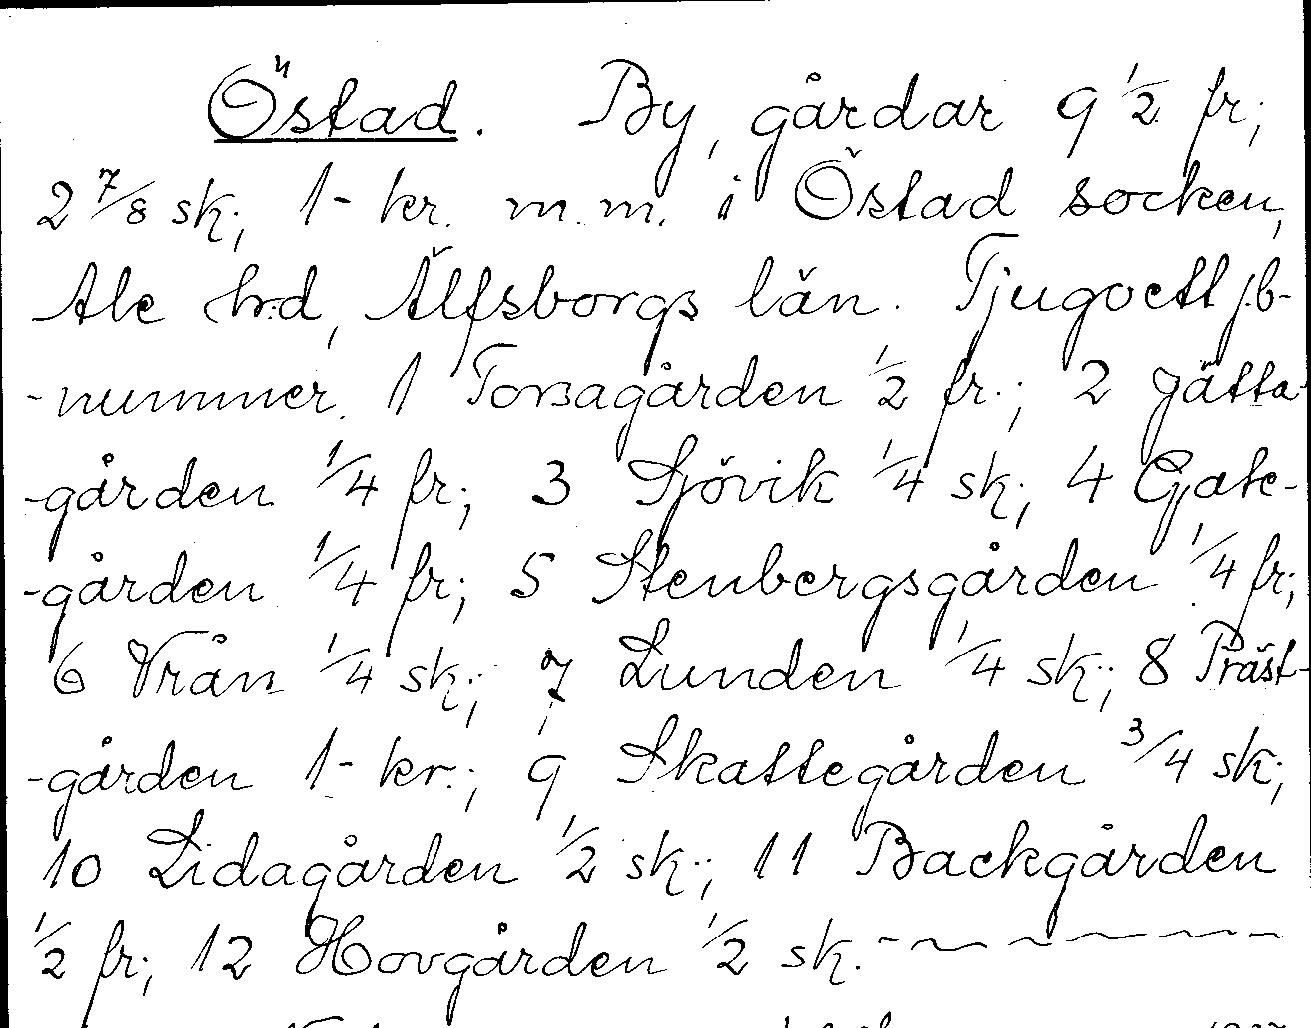 Östad. By, gårdar 9 1/2 fr;
2 7/8 sk; 1- kr. m.m. i Östad socken,
Ale hrd, Älfsborgs län. Tjugoett jb-
-nummer. 1 Torsagården 1/2 fr.; 2 Jätta-
-gården 1/4 fr; 3 Sjövik 1/4 sk; 4 Gate-
-gården 1/4 fr; 5 Stenbergsgården 1/4 fr;
6 Vrån 1/4 sk.; 7 Lunden 1/4 sk.; 8 Präst-
-gården 1- kr.; 9 Skattegården 3/4 sk;
10 Lidagården 1/2 sk.; 11 Backgården
1/2 fr; 12 Hovgården 1/2 sk.